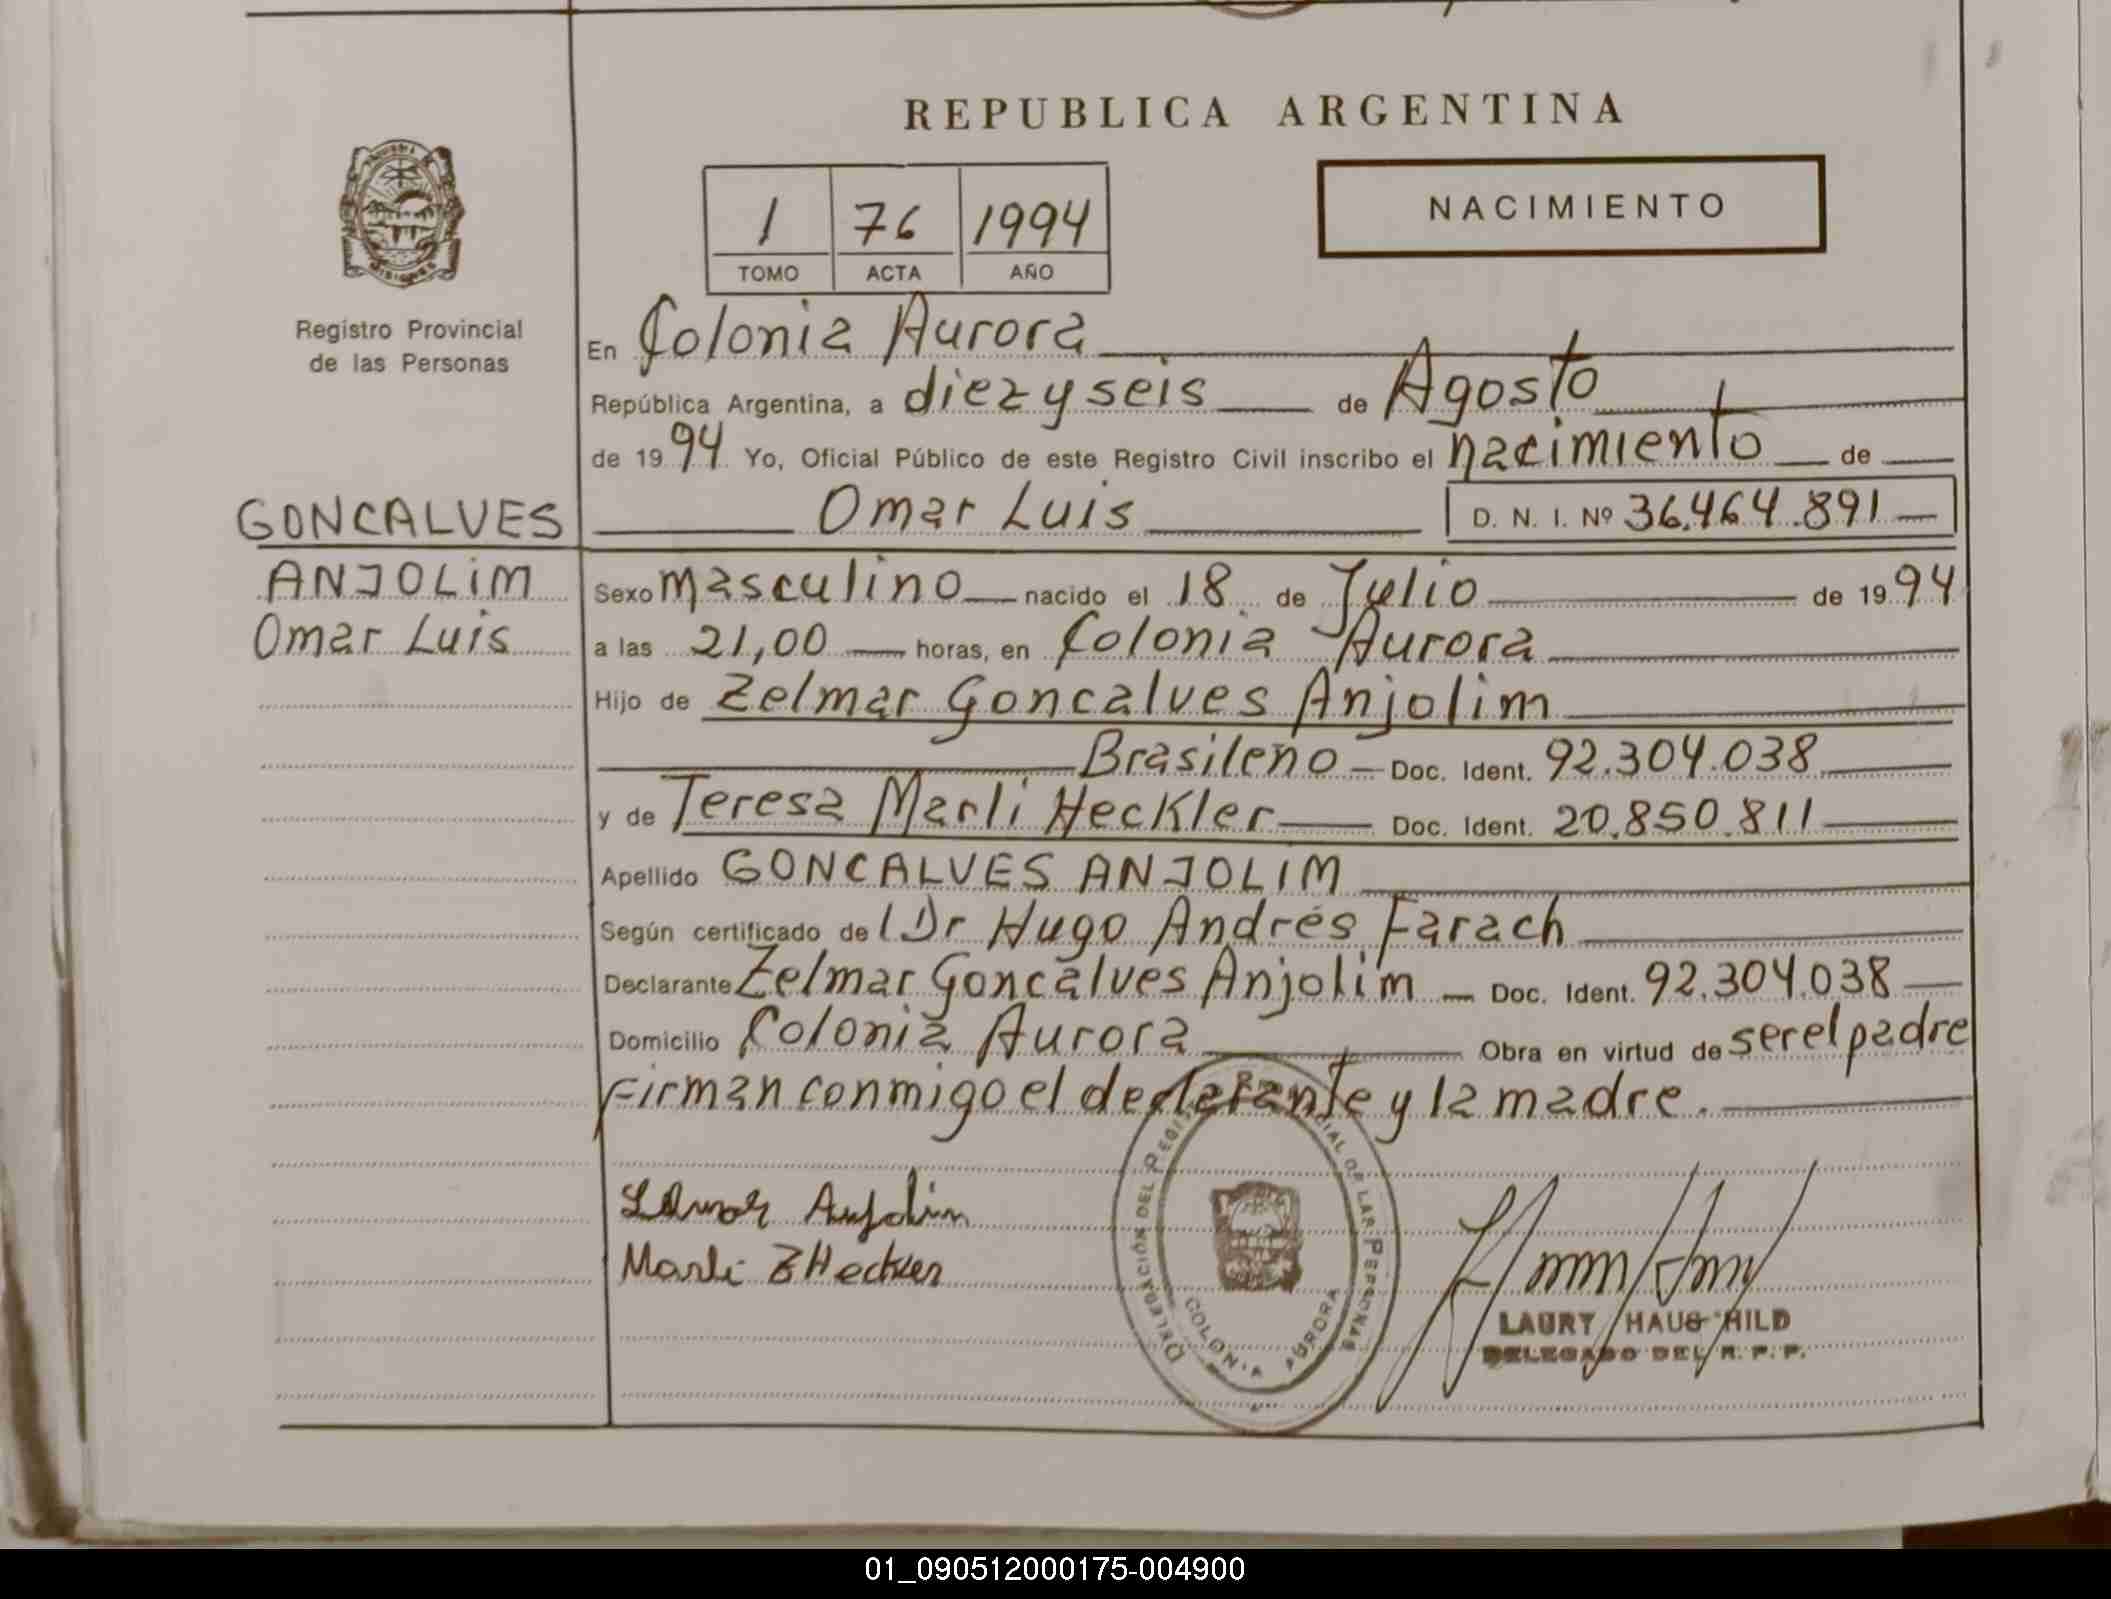 REPUBLICA ARGENTINA
1 76 1994
TOMO ACTA AÑO
NACIMIENTO
Registro Provincial
de las Personas
En Colonia Aurora
República Argentina, a diez y seis de Agosto
de 1994 Yo, Oficial Público de este Registro Civil inscribo el nacimiento de
Omar Luis D. N. I. Nº 36.464.891
GONCALVES
ANJOLIM
Omar Luis
Sexo masculino nacido el 18 de Julio de 1994
a las 21,00 horas, en Colonia Aurora
Hijo de Zelmar Goncalves Anjolim
Brasileño Doc. Ident. 92.304.038
y de Teresa Marli Heckler Doc. Ident. 20.850.811
Apellido GONCALVES ANJOLIM
Según certificado del Dr Hugo Andrés Farach
Declarante Zelmar Goncalves Anjolim Doc. Ident. 92.304.038
Domicilio Colonia Aurora Obra en virtud de ser el padre
Firman conmigo el declarante y la madre.
Anjolim
Marli
DELEGACIÓN DEL REGISTRO PROVINCIAL DE LAS PERSONAS
COLONIA AURORA
LAURY
DELEGADO DEL R. P. P.
01_090512000175-004900